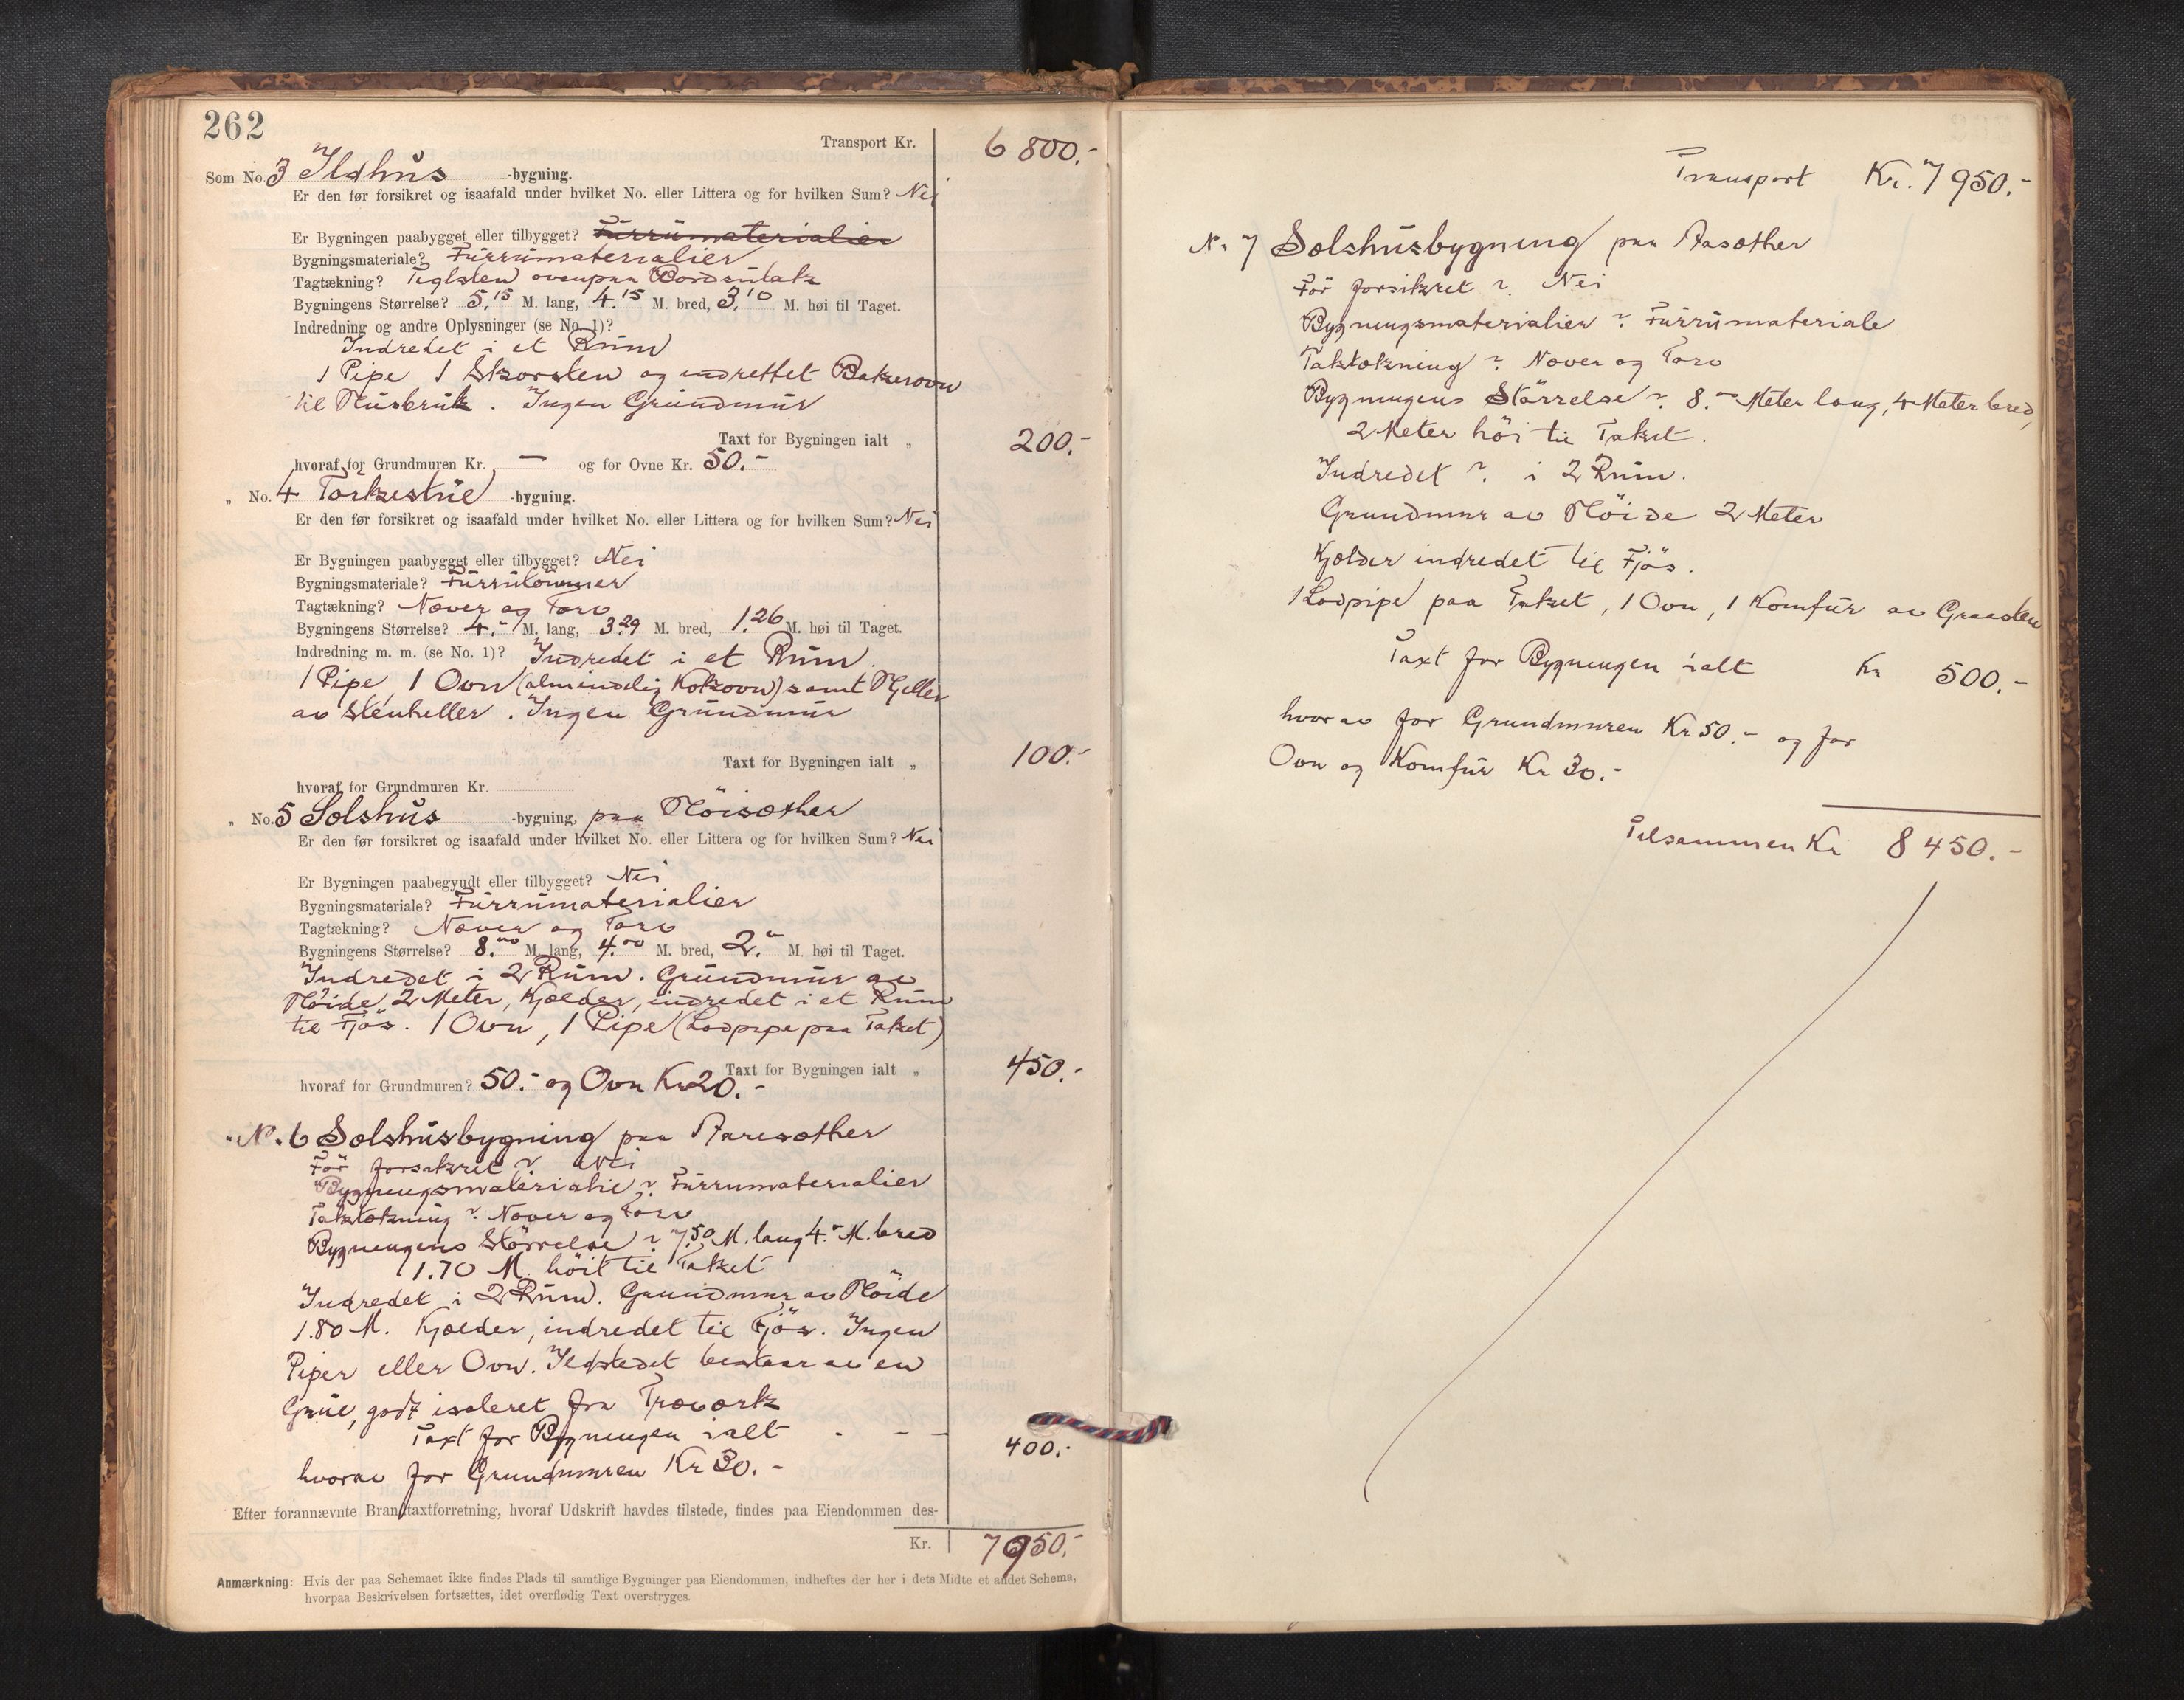 262
Transport Kr. 6 800.-
Som No. 3 Ildhus -bygning.
Er den før forsikret og isaafald under hvilket No. eller Littera og for hvilken Sum? Nei
Er Bygningen paabygget eller tilbygget? Furrumaterialier
Bygningsmateriale? Furrumaterialier
Tagtækning? Teglsten ovenpaa Bordsutak
Bygningens Størrelse? 5,15 M. lang, 4.15 M. bred, 3,10 M. høi til Taget.
Indredning og andre Oplysninger (se No. 1)?
Indredet i et Rum
1 Pipe 1 Skorsten og indrettet Bakerovn
til Husbruk. Ingen Grundmur
Taxt for Bygningen ialt „ 200.-
hvoraf for Grundmuren Kr. — og for Ovne Kr. 50.-
„ No. 4 Törkestue -bygning.
Er den før forsikret og isaafald under hvilket No. eller Littera og for hvilken Sum? Nei
Er Bygningen paabygget eller tilbygget? Nei
Bygningsmateriale? Furrutömmer
Tagtækning? Næver og Torv
Bygningens Størrelse? 4.- M. lang, 3.29 M. bred, 1.26 M. høi til Taget.
Indredning m. m. (se No. 1)? Indredet i et Rum.
1 Pipe, 1 Ovn (almindelig Kokovn) samt Hjeller
av Stenheller. Ingen Grundmur
Taxt for Bygningen ialt „ 100.-
hvoraf for Grundmuren Kr.
„ No. 5 Selshus -bygning, paa Höisæther
Er den før forsikret og isaafald under hvilket No. eller Littera og for hvilken Sum? Nei
Er Bygningen paabegyndt eller tilbygget? Nei
Bygningsmateriale? Furrumaterialier
Tagtækning? Næver og Torv
Bygningens Størrelse? 8.00 M. lang, 4.00 M. bred, 2.- M. høi til Taget.
Indredet i 2 Rum. Grundmur av
Höide 2 Meter, Kjælder, indredet i et Rum
til Fjös. 1 Ovn, 1 Pipe (Lodpipe paa Taket)
Taxt for Bygningen ialt „ 450.-
hvoraf for Grundmuren? 50.- og Ovn Kr 20.-
„ No. 6 Selshusbygning paa Aaresæther
För forsikret? Nei
Bygningsmaterialie? Furrumaterialier
Taktækning? Næver og Torv
Bygningens Störrelse? 7.50 M. lang 4.- M. bred
1.70 M. höit til Taket
Indredet i 2 Rum. Grundmur av Höide
1.80 M. Kjælder, indredet til Fjös. Ingen
Piper eller Ovn. Ildstedet bestaar av en
Grue, godt isoleret fra Træverk
Taxt for Bygningen ialt - - - 400.-
hvorav for Grundmuren Kr 30.-
Efter forannævnte Brandtaxtforretning, hvoraf Udskrift havdes tilstede, findes paa Eiendommen des-
Kr. 7950.-
Anmærkning: Hvis der paa Schemaet ikke findes Plads til samtlige Bygninger paa Eiendommen, indheftes der her i dets Midte et andet Schema,
hvorpaa Beskrivelsen fortsættes, idet overflødig Text overstryges.
Transport Kr. 7950.-
No 7 Selshusbygning paa Aasæther
För forsikret? Nei
Bygningsmaterialier? Furrumateriale
Taktækning? Næver og Torv
Bygningens Störrelse? 8.00 Meter lang, 4 Meter bred,
2 Meter höi til Taket.
Indredet? i 2 Rum.
Grundmur av Höide 2 Meter
Kjælder indredet til Fjös.
1 Lodpipe paa Taket, 1 Ovn, 1 Komfur av Graasten
Taxt for Bygningen ialt Kr 500.-
hvorav for Grundmuren Kr 50.- og for
Ovn og Komfur Kr 30.-
Tilsammen Kr 8 450.-